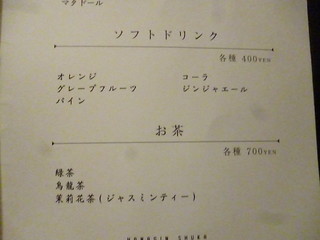 マタドール
ソフトドリンク
各種 400YEN
オレンジ コーラ
グレープフルーツ ジンジャエール
パイン
お茶
各種 700YEN
緑茶
烏龍茶
茉莉花茶(ジャスミンティー)